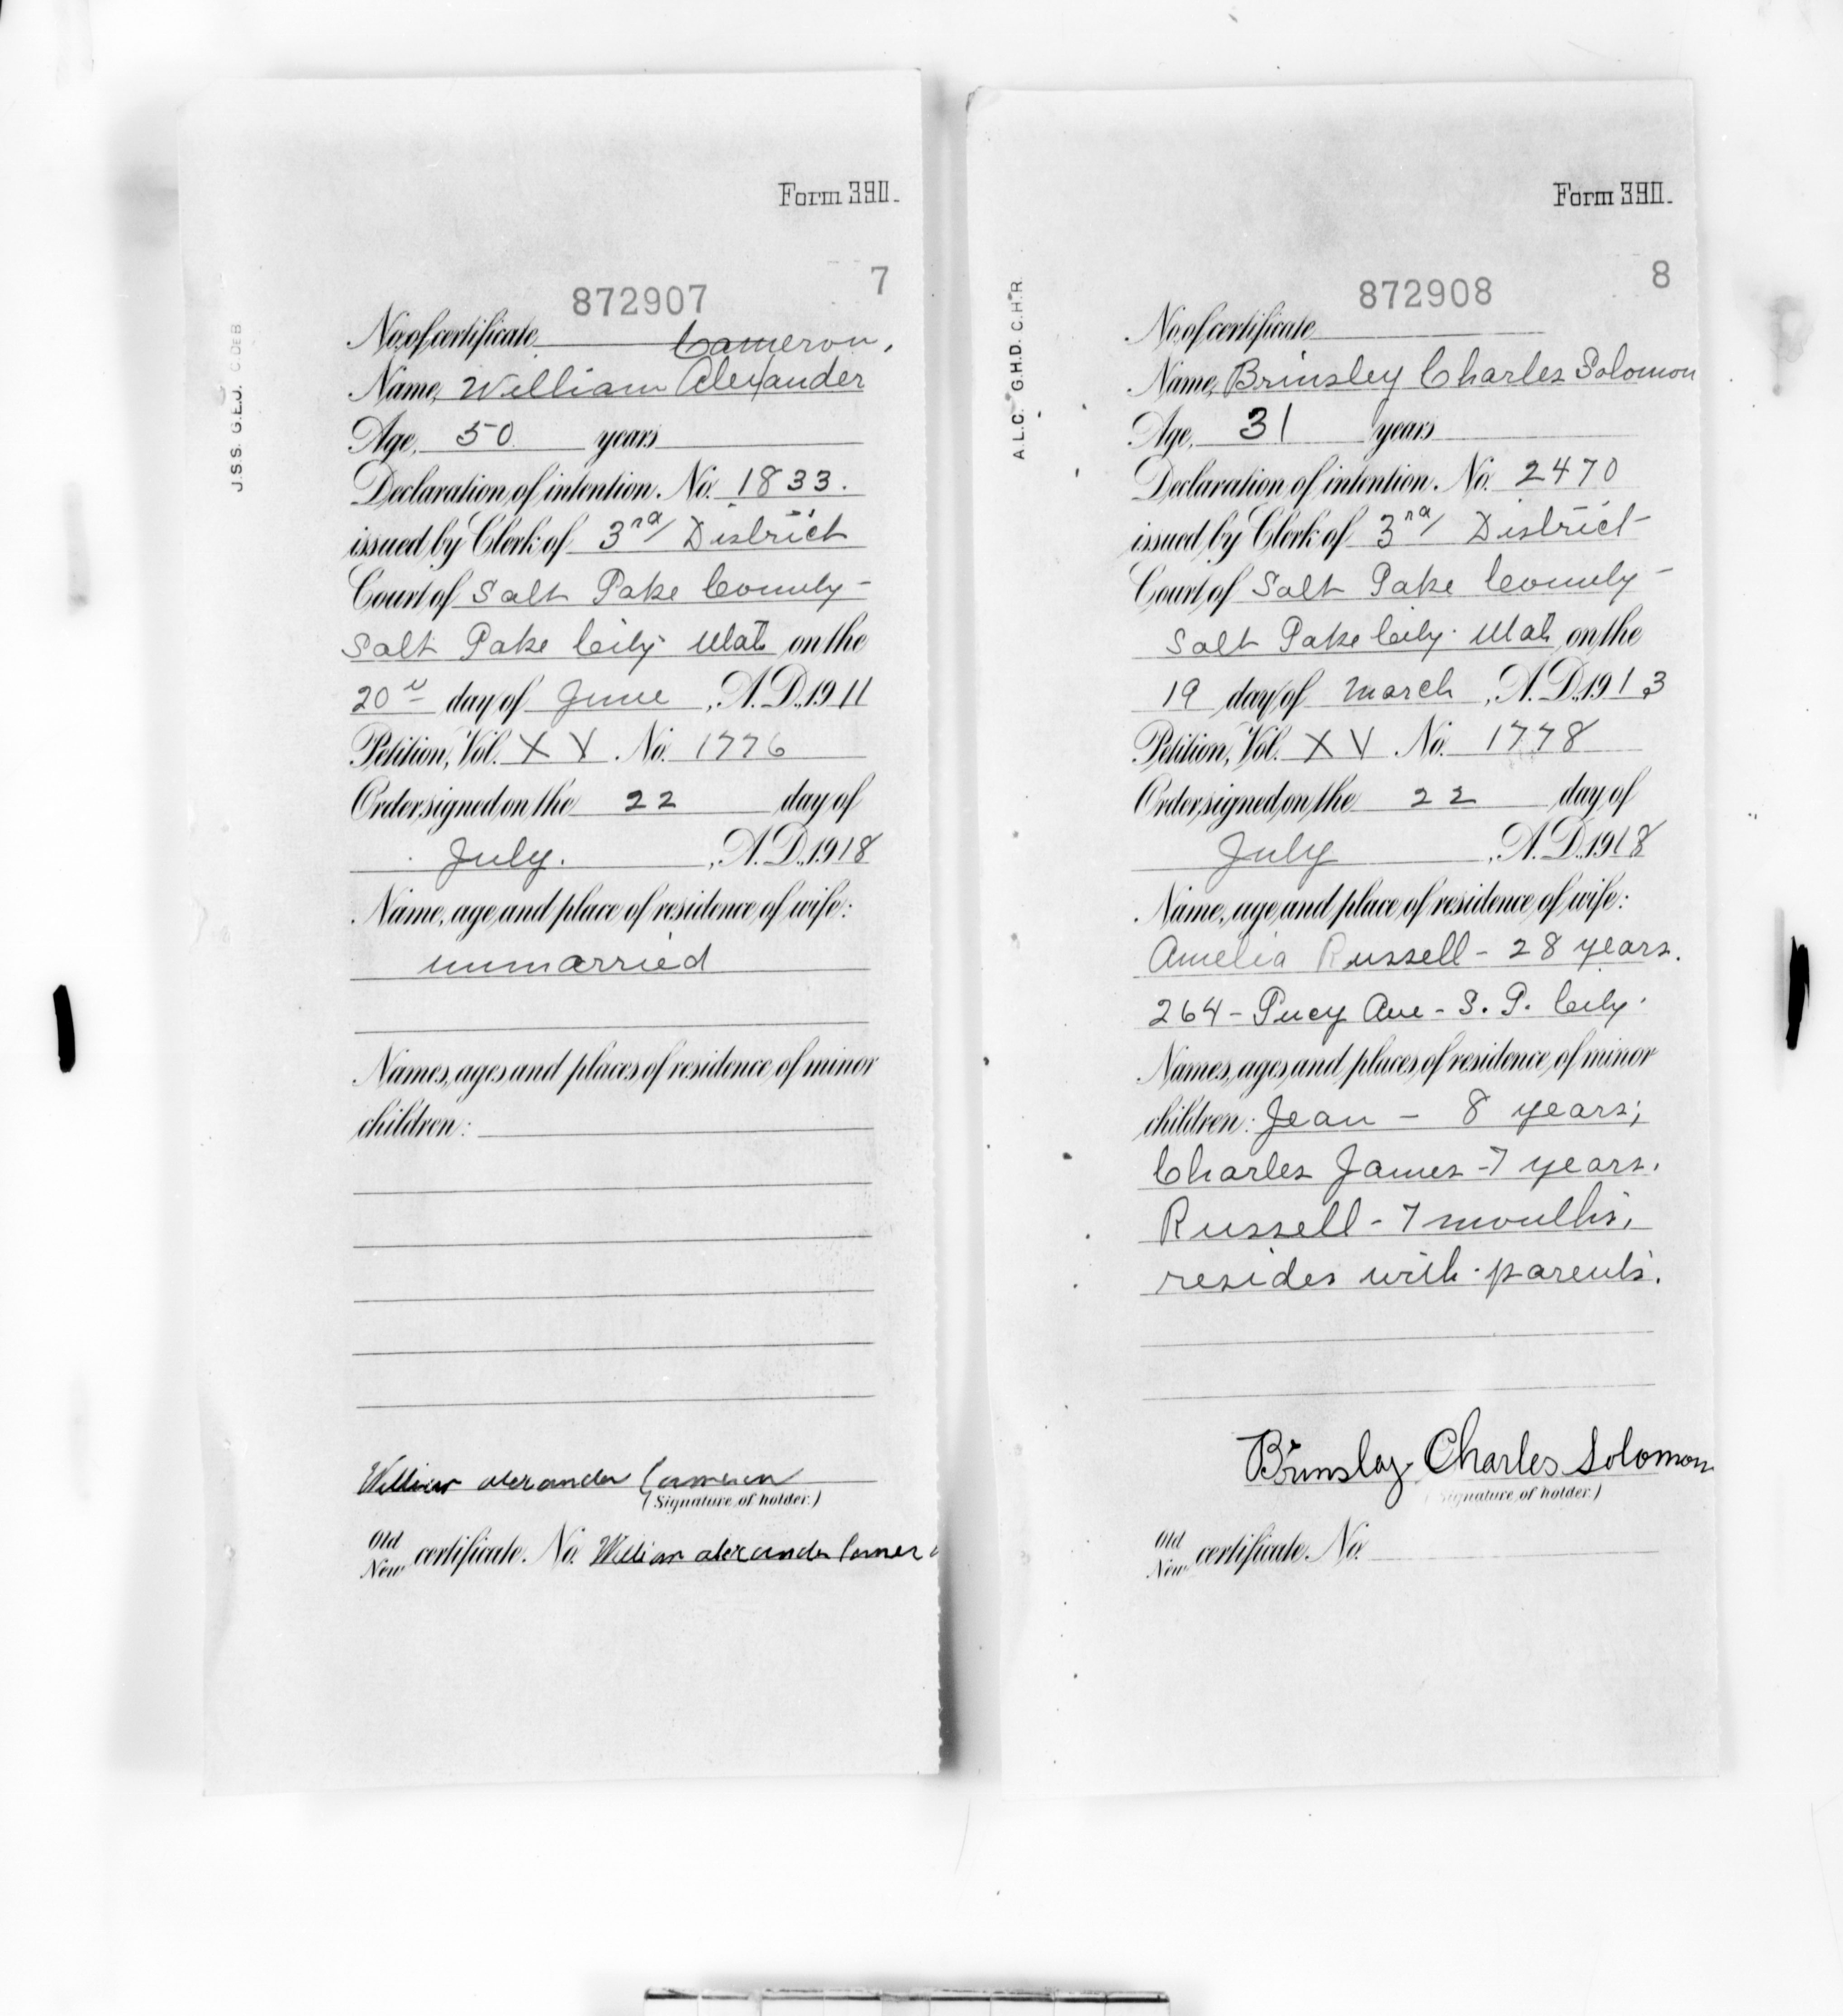 Form 390.
7
872907
No. of certificate Cameron,
Name, William Alexander
Age, 50 years
Declaration of intention. No. 1833.
issued by Clerk of 3rd District
Court of Salt Lake County -
Salt Lake City Utah on the
20th day of June, A. D., 1911
Petition, Vol. XV. No. 1776
Order signed on the 22 day of
July., A. D., 1918
Name, age and place of residence of wife:
unmarried
Names, ages and places of residence of minor
children:
William Alexander Cameron
(Signature of holder.)
Old
New certificate. No. William Alexander
J.S.S. G.E.J. C.DEB
Form 390.
8
872908
No. of certificate
Name, Brinsley Charles Solomon
Age, 31 years
Declaration of intention. No. 2470
issued by Clerk of 3rd District
Court of Salt Lake County -
Salt Lake City. Utah on the
19 day of March, A. D., 1913
Petition, Vol. XV. No. 1778
Order signed on the 22 day of
July, A. D., 1918
Name, age and place of residence of wife:
Amelia Russell - 28 years.
264 - Lucy Ave - S. L. City.
Names, ages and places of residence of minor
children: Jean - 8 years;
Charles James - 7 years.
Russell - 7 months,
resides with parents.
Brinsley Charles Solomon
(Signature of holder.)
Old
New certificate. No.
A.L.C. G.H.D. C.H.R.